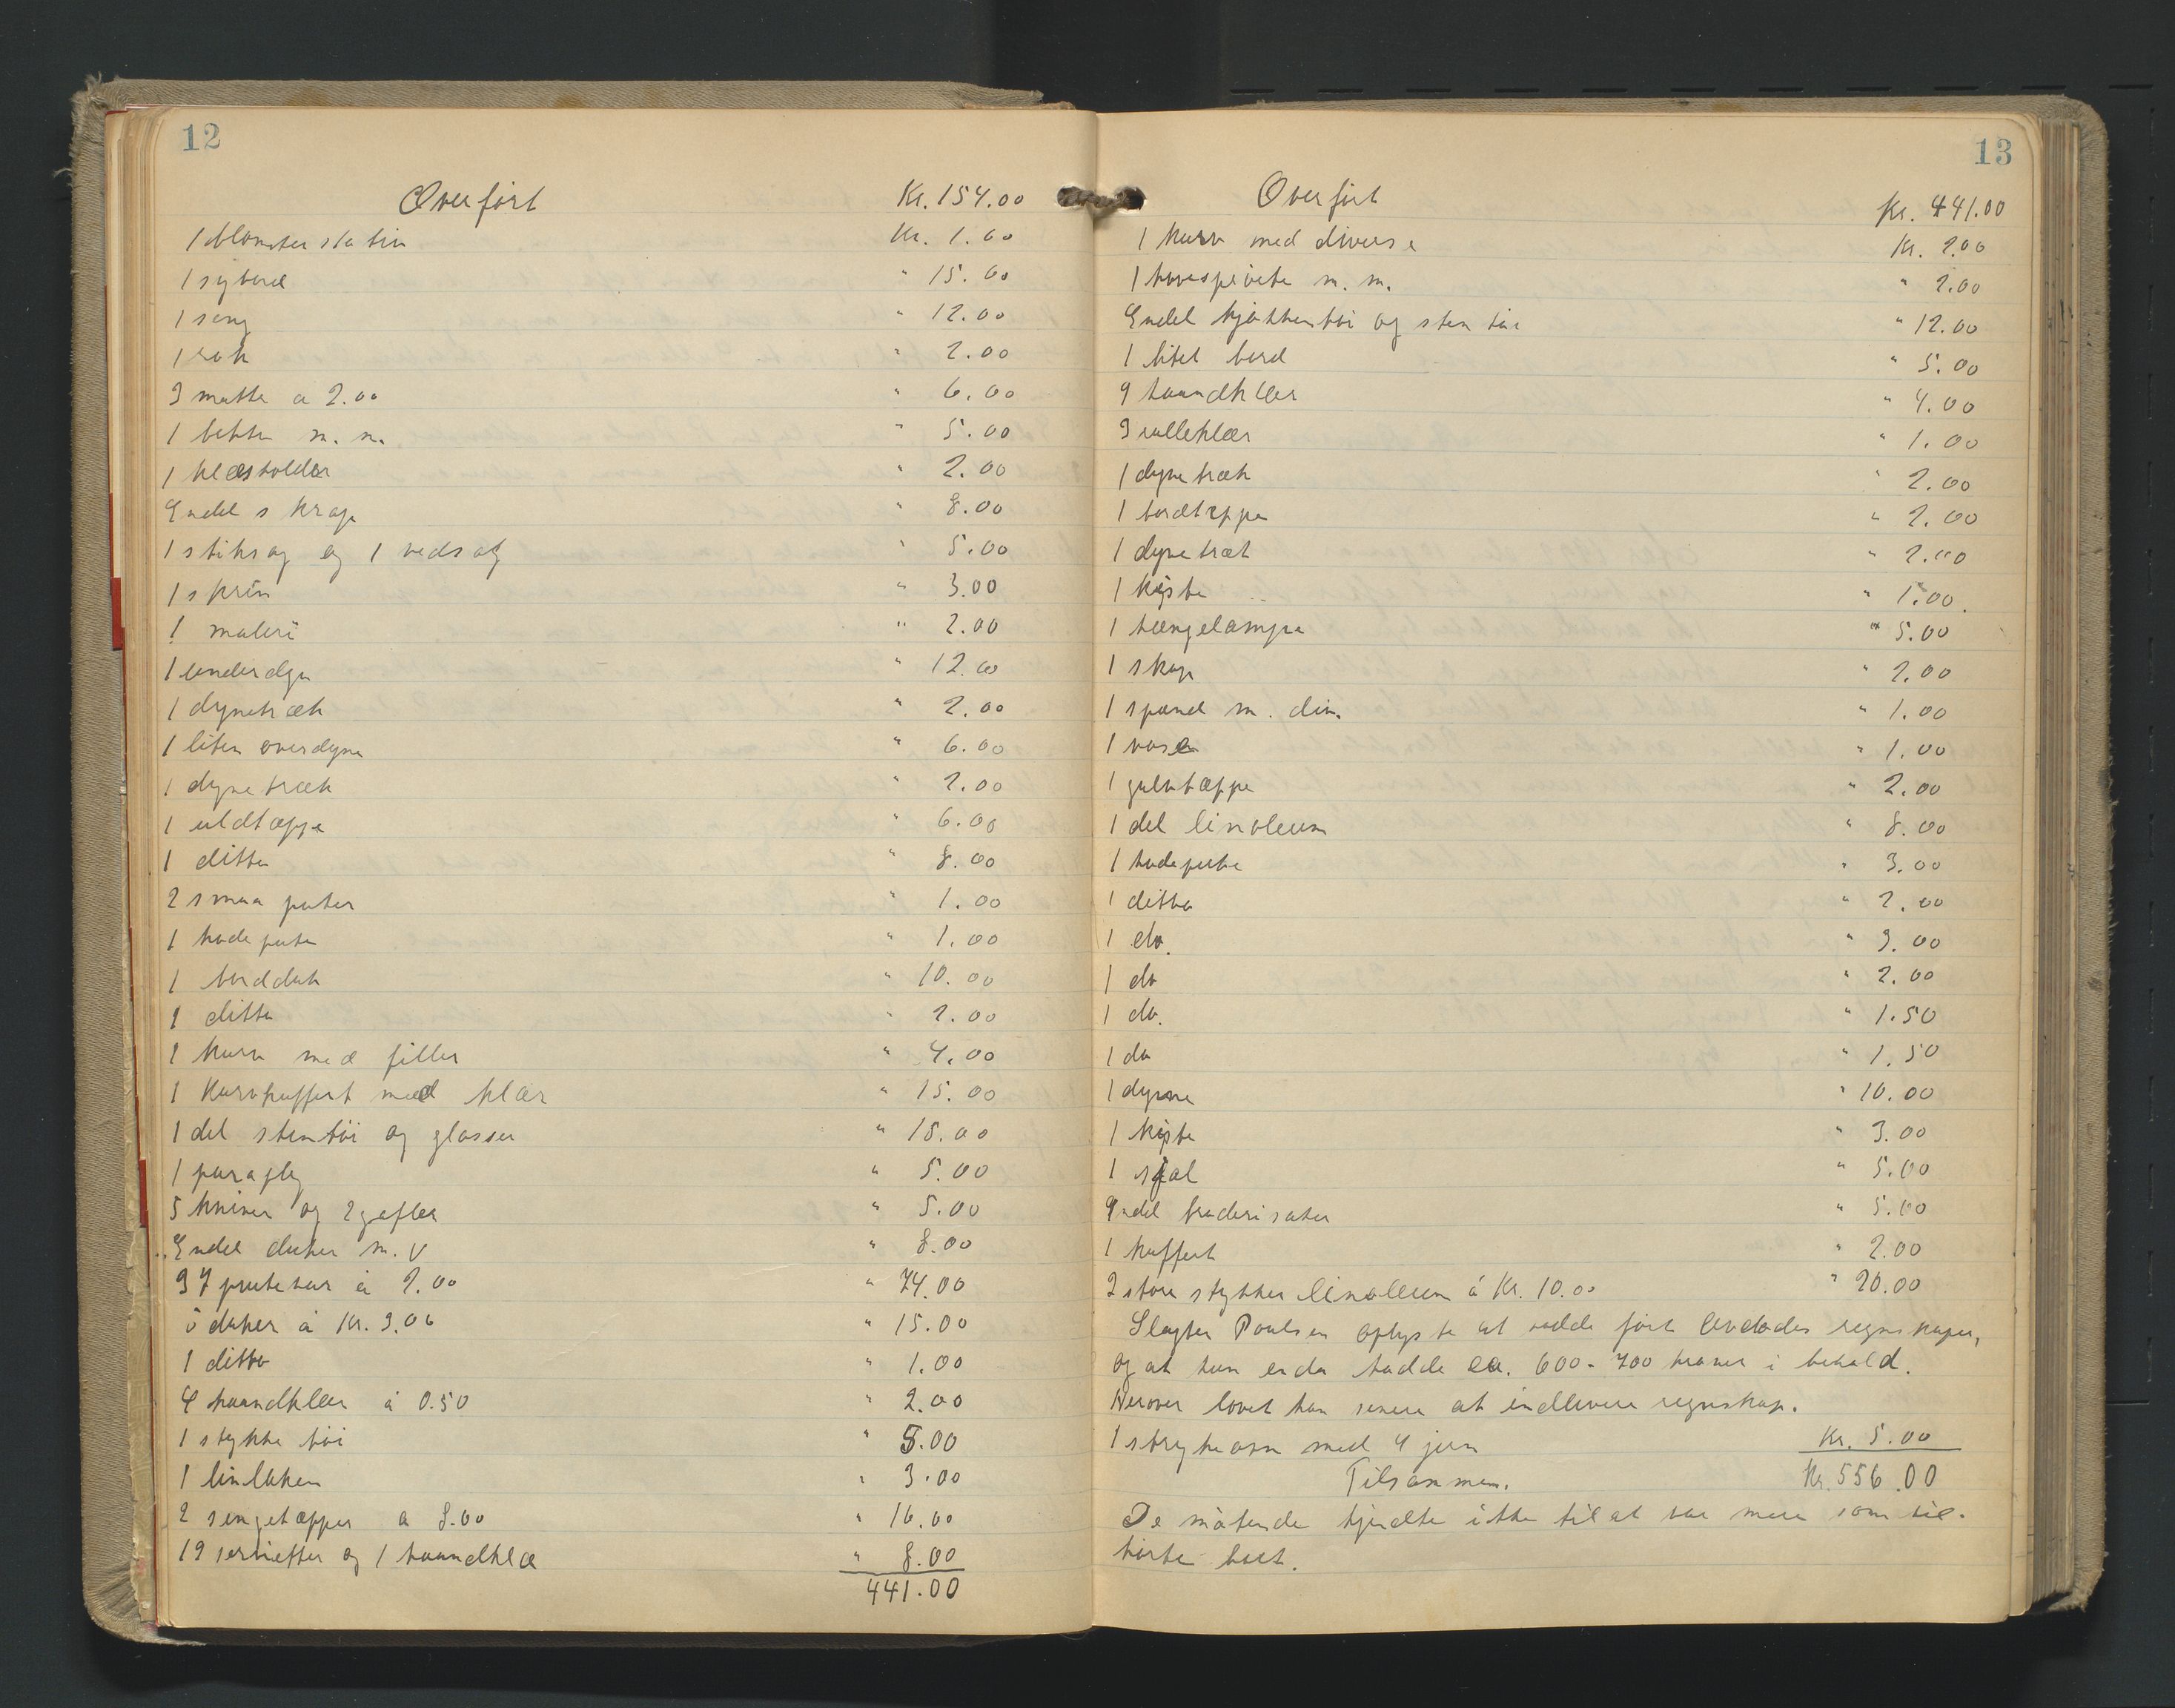 12
Overført Kr. 154.00
1 blomsterstativ Kr. 1.00
1 sybord " 15.00
1 seng " 12.00
1 rok " 2.00
3 matter a 2.00 " 6.00
1 bøtte m. m. " 5.00
1 klæsholder " 2.00
Endel skrap " 8.00
1 stiksag og 1 vedsag " 5.00
1 skrin " 3.00
1 maleri " 2.00
1 underdyn " 12.00
1 dynetræk " 2.00
1 liten overdyne " 6.00
1 dynetræk " 2.00
1 uldtæppe " 6.00
1 ditto " 8.00
2 smaa puter " 1.00
1 hodepute " 1.00
1 bordduk " 10.00
1 ditto " 2.00
1 kurv med filler " 4.00
1 kurvkuffert med klær " 15.00
1 del stentøi og glasser " 18.00
1 paraply " 5.00
5 kniver og 2 gafler " 5.00
Endel duker m. v " 8.00
37 putevar á 2.00 " 74.00
5 duker á Kr. 3.00 " 15.00
1 ditto " 1.00
4 haandklær á 0.50 " 2.00
1 stykke tøi " 5.00
1 linlaken " 3.00
2 sengetæpper a 8.00 " 16.00
19 servietter og 1 haandklæ " 8.00
441.00
13
Overført Kr. 441.00
1 kurv med diverse Kr. 2.00
1 m. m. " 2.00
Endel kjøkkentøi og stentøi " 12.00
1 litet bord " 5.00
9 haandklær " 4.00
3 rulleklær " 1.00
1 dynetræk " 2.00
1 bordtæppe " 2.00
1 dynetræk " 2.00
1 kiste " 1.00.
1 hængelampe " 5.00
1 skap " 2.00
1 spand m. div. " 1.00
1 vase " 1.00
1 gulvtæppe " 2.00
1 del linoleum " 8.00
1 hodepute " 3.00
1 ditto " 2.00
1 do. " 3.00
1 do " 2.00
1 do. " 1.50
1 do " 1.50
1 dyne " 10.00
1 kiste " 3.00
1 sjal " 5.00
Endel broderisaker " 5.00
1 kuffert " 2.00
2 store stykker linoleum á Kr. 10.00 " 20.00
Slagter Poulsen oplyste at hadde ført avdødes regnskaper,
og at han enda hadde ca. 600-700 kroner i behold.
Herover lovet han senere at indlevere regnskap.
1 strykeovn med 4 jern Kr. 5.00
Tilsammen. Kr. 556.00
De møtende kjendte ikke til at var mere som til-
hørte boet.